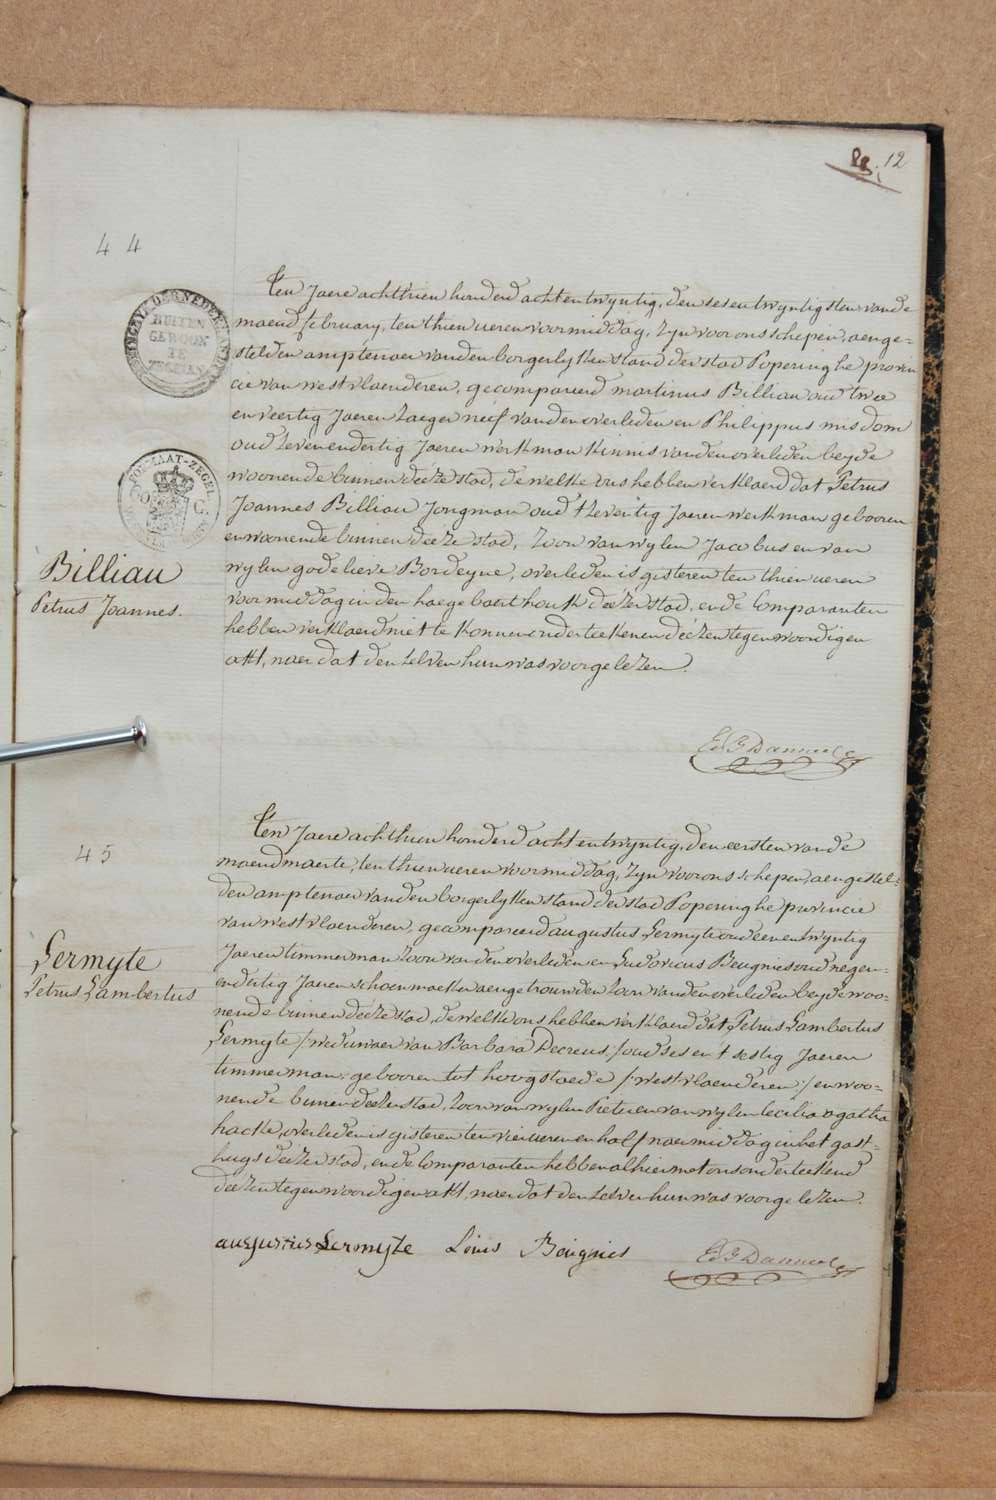 12
44
BUITEN
GEWOON
TE
ZEGELEN
FORMAAT-ZEGEL
Billiau
Petrus Joannes.
Ten Jaere achthien honderd achtentwyntig, den sesentwyntigsten vande
maend february, ten thien ueren voormiddag, zyn voor ons schepen, aenge-
stelden amptenaer vanden borgerlyken stand der stad Poperinghe provin
cie van westvlaenderen, gecompareerd martinus Billiau oud twee
en veertig Jaeren zaeger neef vanden overleden en Philippus misdom
oud zevenendertig Jaeren werkman kinnis vanden overleden beyde
woonende binnen deéze stad, dewelke ons hebben verklaerd dat Petrus
Joannes Billiau Jongman oud tzeventig Jaeren werkman gebooren
en woonende binnen deéze stad, zoon van wylen Jacobus en van
wylen godelieve Bordeyne, overleden is gisteren ten thien ueren
voormiddag in den haegebaert houk deézer stad, en de Comparanten
hebben verklaerd niet te konnen onderteekenen déézen tegenwoordigen
akt, naer dat den zelven hun was voorgelezen.
45
Lermyte
Petrus Lambertus
Ten Jaere achthien honderd achtentwyntig, den eersten vande
maend maerte, ten thien ueren voormiddag, zyn voor ons schepen, aengestel-
den amptenaer vanden borgerlyken stand der stad Poperinghe provincie
van westvlaenderen, gecompareerd augustus Lermyte oud eenentwyntig
Jaeren timmerman zoon vanden overleden en Ludovicus Beugnies oud negen-
endertig Jaeren schoenmaeker aengetrouwden zoon vanden overleden beyde woo-
nende binnen deéze stad, dewelke ons hebben verklaerd dat Petrus Lambertus
Lermyte /: weduwaer van Barbara Decreus :/ oud ses en tsestig Jaeren
timmerman, gebooren tot hoogstaede /: westvlaenderen :/ en woo-
nende binnen deézer stad, zoon van wylen Pieter en van wylen Cecilia agatha
hacke, overleden is gisteren ten vier ueren en half naermiddag in het gast-
huys deézer stad, en de Comparanten hebben alhier met ons onderteekend
deézen tegenwoordigen akt, naer dat den zelven hun was voorgelezen.
augustus Lermyte Louis Beugnies